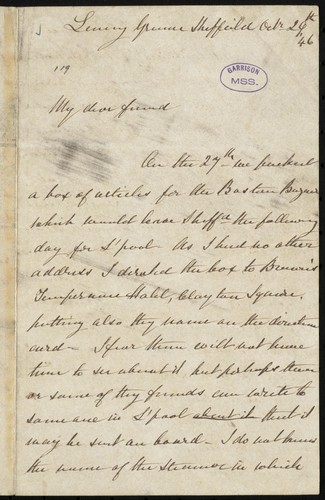 Sheffield Octr 29th
/46
119
GARRISON
MSS.
My dear friend
On the 27th we packed
a box of articles for the Boston Bazaar
which would leave Sheffd the following
day for L'pool - As I had no other
address I directed the box to Brown's
Temperance Hotel, Clayton Square,
putting also thy name on the direction
card - I fear thou wilt not have
time to see about it but perhaps thou
or some of thy friends can write to
someone in L'pool about it that it
may be sent on board - I do not know
the name of the steamer in which